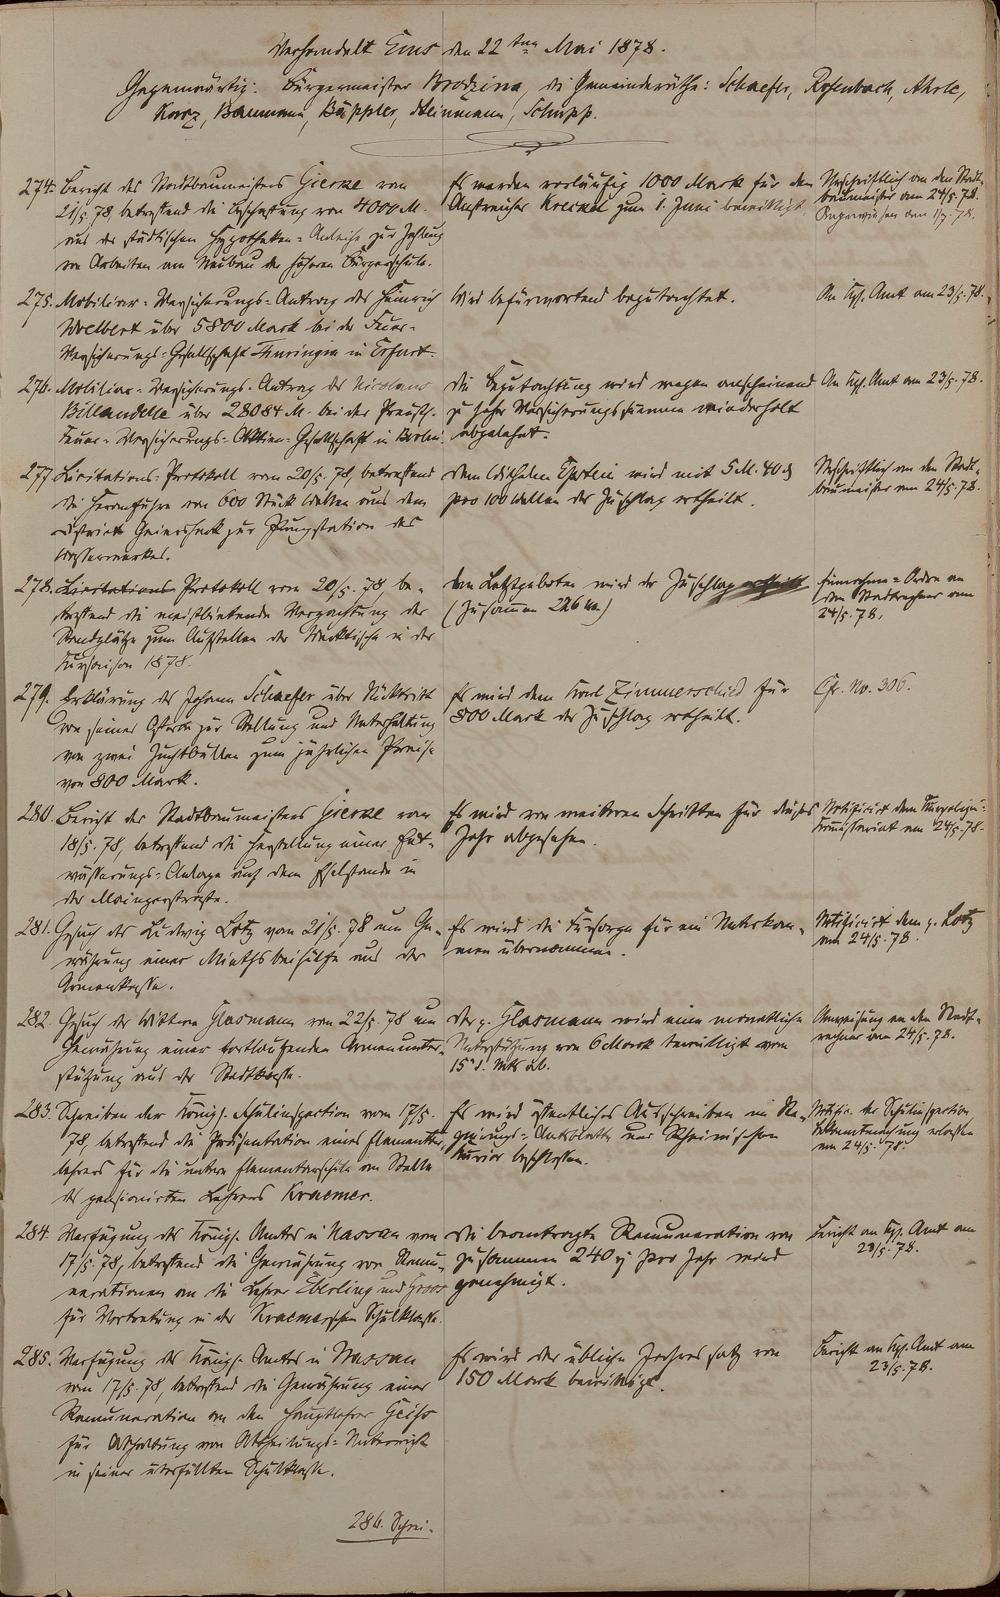 Verhandelt Ems den 22ten Mai 1878.
Gegenwärtig: Bürgermeister Brodzina, die Gemeinderäthe: Schaefer, Rosenbach, Ahrle,
Kurz, Baumann, Büppler, Heinmann, Schupp.
274. Bericht des Stadtbaumeisters Gierke vom
21/5. 78, betreffend die Beschaffung von 4000 M.
aus der städtischen Hypotheken-Anleihe zur Zahlung
von Arbeiten am Neubau der höheren Bürgerschule.
Es werden vorläufig 1000 Mark für den
Anstreicher Kreckel zum 1. Juni bewilligt.
Urschriftlich an den Stadt-
baumeister am 24/5. 78.
Angewiesen am 1/7. 78.
275. Mobiliar-Versicherungs-Antrag des Heinrich
Woelbert über 5800 Mark bei der Feuer-
Versicherungs-Gesellschaft Thuringia in Erfurt.
Wird befürwortend begutachtet.
An Kgl. Amt am 23/5. 78.
276. Mobiliar-Versicherungs-Antrag des Nicolaus
Billaudelle über 28084 M. bei der Preuß.
Feuer-Versicherungs-Aktien-Gesellschaft in Berlin.
Die Begutachtung wird wegen anscheinend
zu hoher Versicherungssummen wiederholt
abgelehnt.
An Kgl. Amt am 23/5. 78.
277. Licitations-Protokoll vom 20/5. 78, betreffend
die Heranfuhr von 600 Stück Wellen aus dem
District Geiershack zur Pumpstation des
Wasserwerkes.
Dem Wilhelm Epstein wird mit 5 M. 40 d
pro 100 Wellen der Zuschlag ertheilt.
Urschriftlich an den Stadt-
baumeister am 24/5. 78.
278. Licitations-Protokoll vom 20/5. 78 be-
treffend die meistbietende Verpachtung der
Standplätze zum Aufstellen der Verkaufstische in der
Kursaison 1878.
Den Letztgeboten wird der Zuschlag ertheilt
(Zusammen 226 M.)
Einnahme-Ordre an
den Stadtrechner am
24/5. 78.
279. Erklärung des Johann Schaefer über Rücktritt
von seiner Offerte zur Stellung und Unterhaltung
von zwei Zuchtbullen zum jährlichen Preise
von 800 Mark.
Es wird dem Karl Zimmerschied für
800 Mark der Zuschlag ertheilt.
Cfr. No. 306.
280. Bericht des Stadtbaumeisters Gierke vom
18/5. 78, betreffend die Herstellung einer Ent-
wässerungs-Anlage auf dem Eselstande in
der Mainzerstraße.
Es wird von weiteren Schritten für dieses
Jahr abgesehen.
Notificirt dem Kurpolizei-
Commissariat am 24/5. 78.
281. Gesuch des Ludwig Lotz vom 21/5. 78 um Ge-
währung einer Miethsbeihülfe aus der
Armenkasse.
Es wird die Fürsorge für ein Unterkom-
men übernommen.
Notificirt dem p. Lotz
am 24/5. 78.
282. Gesuch der Wittwe Glasmann vom 22/5. 78 um
Gewährung einer fortlaufenden Armenunter-
stützung aus der Stadtkasse.
Der p. Glasmann wird eine monatliche
Unterstützung von 6 Mark bewilligt vom
15" d. Mts ab.
Anweisung an den Stadt-
rechner am 24/5. 78.
283. Schreiben der Königl. Schulinspection vom 17/5.
78, betreffend die Präsentation eines Elementar-
lehrers für die untere Elementarschule an Stelle
des pensionirten Lehrers Kraemer.
Es wird öffentliches Ausschreiben im Re-
gierungs-Amtsblatte und Rheinischen
Kurier beschlossen.
Notific. der Schulinspection
Bekanntmachung erlassen
am 24/5. 78.
284. Verfügung des Königl. Amtes in Nassau vom
17/5. 78, betreffend die Gewährung von Remu-
nerationen an die Lehrer Eberling und Groos
für Vertretung in der Kraemer'schen Schulklasse.
Die beantragte Remuneration von
zusammen 240 M pro Jahr wird
genehmigt.
Bericht an Kgl. Amt am
23/5. 78.
285. Verfügung des Königl. Amtes in Nassau
vom 17/5. 78, betreffend die Gewährung einer
Remuneration an den Hauptlehrer Geiß
für Abhaltung von Abtheilungs-Unterricht
in seiner überfüllten Schulklasse.
Es wird der übliche Jahressatz von
150 Mark bewilligt.
Bericht an Kgl. Amt am
23/5. 78.
286. Schrei-